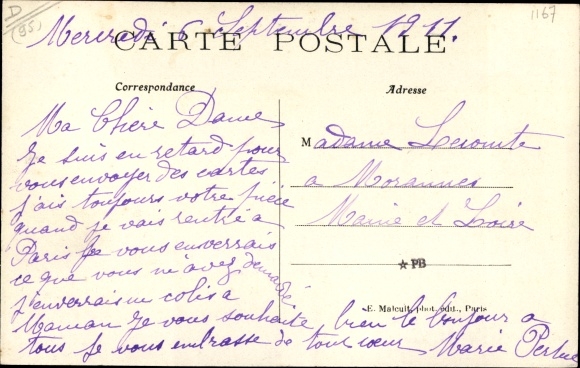 D
(95)
1167
Mercredi 6 Septembre 1911.
CARTE POSTALE
Correspondance
Adresse
Ma Chère Dame
Je suis en retard pour
vous envoyer des cartes
j'ais toujours votre pièce
quand je vais rentré a
Paris Je vous enverrais
ce que vous m'avez demandé
j'enverrais un colis a
Maman Je vous souhaite bien le bonjour a
tous Je vous embrasse de tout cœur Marie
Madame Lecomte
a Morannes
Maine et Loire
PB
E. Malcuit, phot. édit., Paris